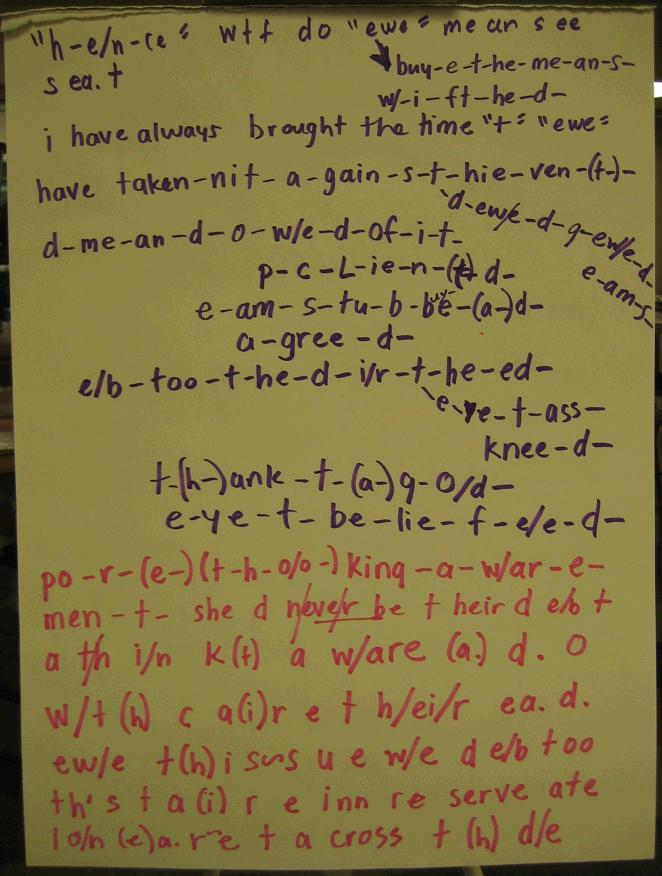 "h-e/n-ce" wtf do "ewe" mean see
sea.t
buy-e-t-he-me-an-s-
w/-i-ft-he-d-
i have always brought the time "t" "ewe"
have taken-nit-a-gain-s-t-hie-ven-(t-)-
d-ew/e-d-g-ew/e-d-
e-am-s-
d-me-an-d-o-w/e-d-of-i-t-
p-c-L-ie-n-(t) d-
e-am-s-tu-b-be-(a-)d-
buy
a-gree-d-
e/b-too-t-he-d-i/r-t-he-ed-
e-ye-t-ass-
knee-d-
t-(h-)ank-t-(a-)g-o/d-
e-ye-t-be-lie-f-e/e-d-
po-r-(e-)(t-h-o/o-)king-a-w/ar-e-
men-t- she d never be t heir d e/b t
a th i/n k(t) a w/are (a.) d. o
w/t (h) c a(i)r e t h/ei/r ea. d.
ew/e t(h)i sus u e w/e d e/b too
th's t a(i) r e inn re serve ate
i o/n (e)a.re t a cross t (h) d/e